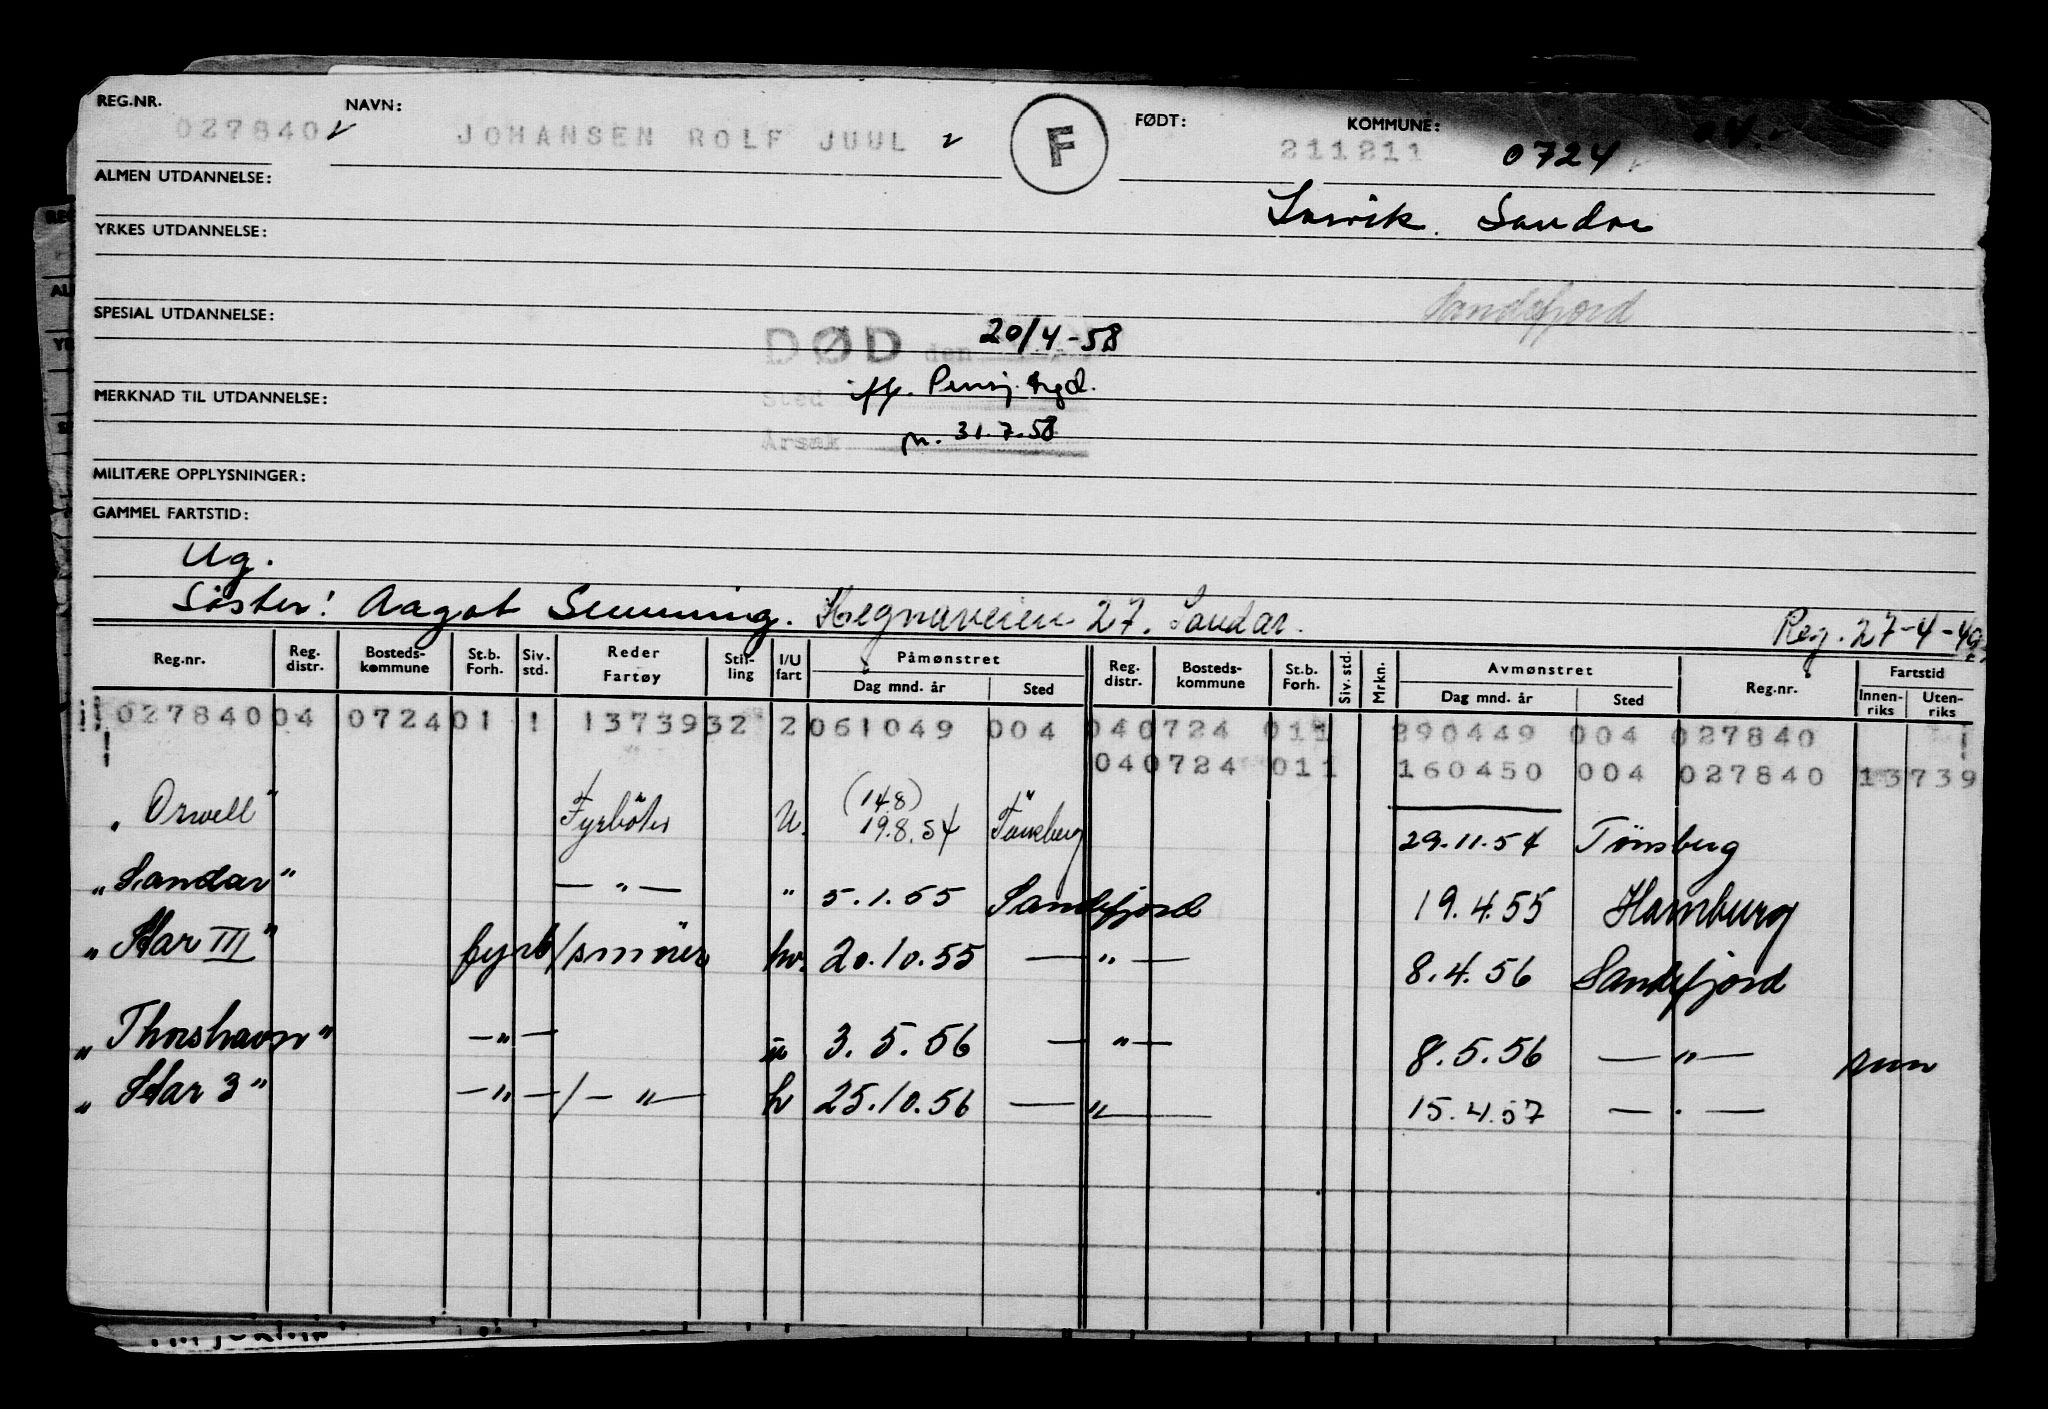 REG.NR. NAVN: FØDT: KOMMUNE:
027840 JOHANSEN ROLF JUUL F 211211 0724 04.
ALMEN UTDANNELSE:
Larvik. Sandar
YRKES UTDANNELSE:
Sandefjord
SPESIAL UTDANNELSE:
DØD den 20/4-58
Sted iflg. Pensj. trygd.
MERKNAD TIL UTDANNELSE:
Årsak 31.7.58
MILITÆRE OPPLYSNINGER:
GAMMEL FARTSTID:
Ug.
Søster: Aagot Semming. Hegnaveien 27. Sandar. Reg. 27-4-49
Reg.nr. Reg. distr. Bosteds-kommune St.b. Forh. Siv. std. Reder Fartøy Stil-ling I/U fart Påmønstret Dag mnd. år Sted Reg. distr. Bosteds-kommune St.b. Forh. Siv. std. Mrkn. Avmønstret Dag mnd. år Sted Reg.nr. Fartstid Innen-riks Uten-riks
027840 04 0724 01 1 13739 32 2 061049 004 040724 011 290449 004 027840
040724 011 160450 004 027840 13739
"Orwell" Fyrbøter U. (14.8) 19.8.54 Tönsberg 29.11.54 Tønsberg
"Sandar" — " — " 5.1.55 Sandefjord 19.4.55 Hamburg
"Star III" fyrb/smörer hv. 20.10.55 — " — 8.4.56 Sandefjord
"Thorshavn" — " — u 3.5.56 — " — 8.5.56 — " —
"Star 3" — " — / — " — h 25.10.56 — " — 15.4.57 — " —